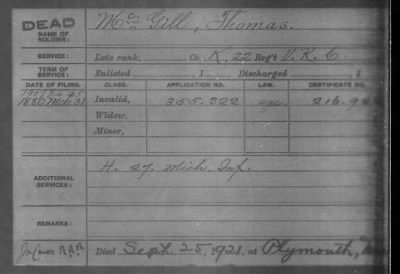 DEAD
NAME OF SOLDIER:
McGill, Thomas.
SERVICE:
Late rank, Co. K, 22 Reg't V. R. C.
TERM OF SERVICE:
Enlisted , 1 Discharged , 1
DATE OF FILING. CLASS. APPLICATION NO. LAW. CERTIFICATE NO.
1880 Mch 31 Invalid, 355.322
Widow,
Minor,
ADDITIONAL SERVICES:
H. 27 Mich. Inf.
REMARKS:
Died Sept. 25, 1921, at Plymouth,